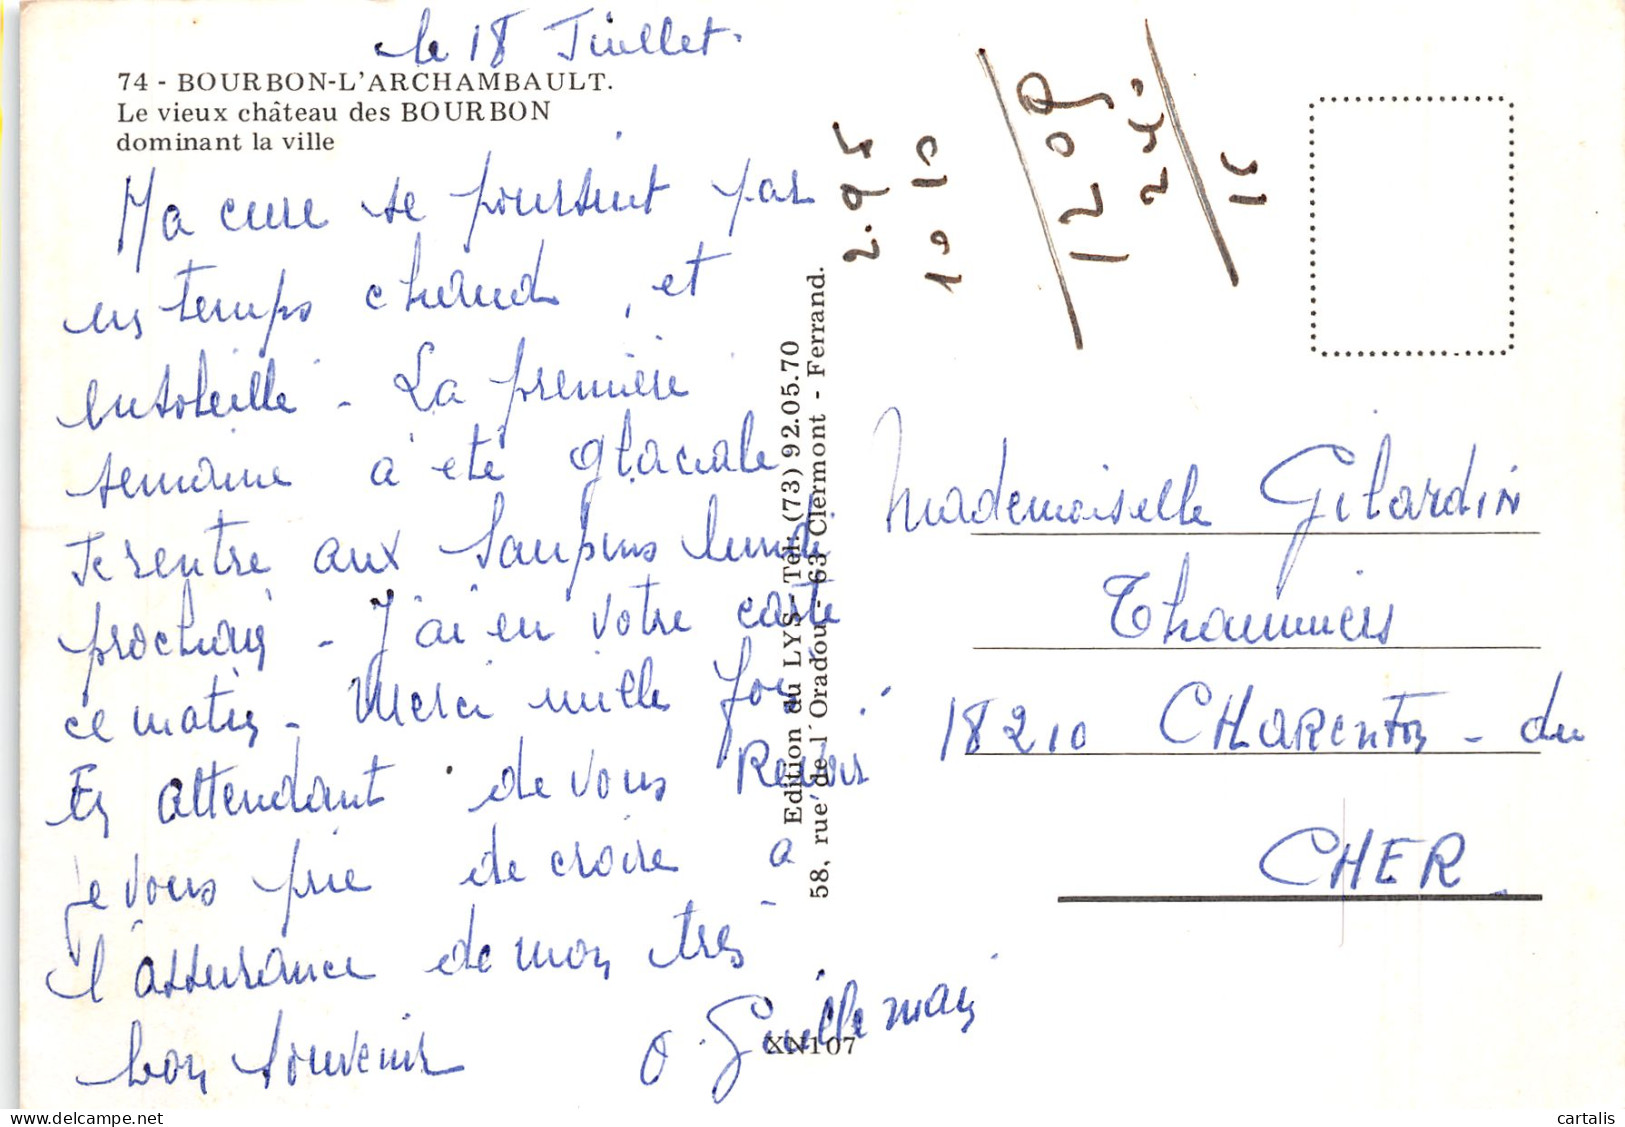 le 18 Juillet.
74 - BOURBON-L'ARCHAMBAULT.
Le vieux château des BOURBON
dominant la ville
Ma cure se poursuit par
un temps chaud, et
ensoleillé - La première
semaine a été glaciale
Je rentre aux lundi
prochain - J'ai eu votre carte
ce matin - Merci mille fois
En attendant de vous Revoir
je vous prie de croire à
l'assurance de mon très
bon souvenir
O. Guillemain
Edition du LYS - Tél. (73) 92.05.70
58, rue de l'Oradou - 63 Clermont - Ferrand.
XN107
10 10
Mademoiselle Gilardin
Thaumiers
18210 CHARENTON - du
CHER
cartalis